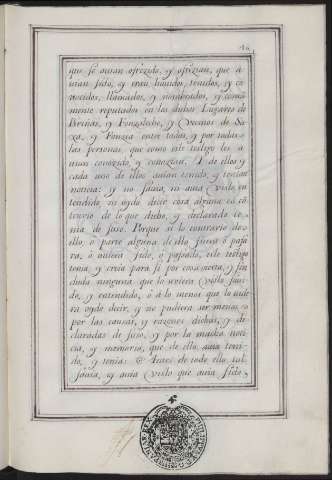 que se auian ofrezido, y ofrezian, que a
uian sido, y eran hauidos, tenidos, y co
nocidos, llamados, y nombrados, y comu
mente reputados en los dichos Lugares de
y Fonzaleche, y Vecinos de
y Fonzea entre todas, y por todas
las personas, que como este testigo los a
uian conozido, y conozian. Y de ellos y
cada uno de ellos auian tenido, y tenian
noticia: y no sauia, ni auia visto, en
tendido, ni oydo decir cosa alguna en co
trario de lo que dicho, y declarado te
nia de suso. Porque si lo contrario de
ello, ó parte alguna de ello fuera ó pasa
ra, ó uuiera sido, ó pasado, este testigo
tenia, y creia para si por cosa cierta, y sin
duda ninguna que lo uuiera visto, saui
do, y entendido, ó a lo menos que lo uuie
ra oydo decir, y no pudiera ser menos
por las causas, y razones dichas, y de
claradas de suso, y por la mucha noti
cia, y memoria, que de ello auia teni
do, y tenia: Antes de todo ello sal
sauia, y auia visto que auia sido